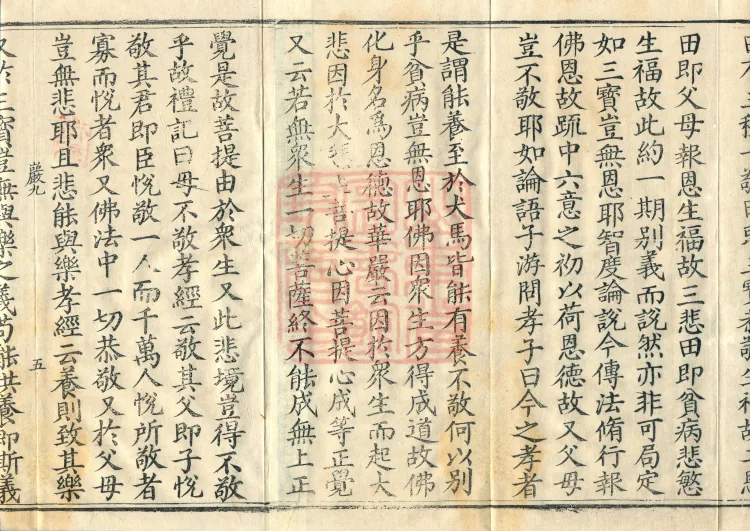 田即父母報恩生福故三悲田即貧病悲愍
生福故此約一期別義而說然亦非可局定
如三寶豈無恩耶智度論說今傳法脩行報
佛恩故䟽中六意之初以荷恩德故又父母
豈不敬耶如論語子游問孝子曰今之孝者
是謂能養至於犬馬皆能有養不敬何以別
乎貧病豈無恩耶佛因衆生方得成道故佛
化身名爲恩德故華嚴云因於衆生而起大
悲因於大悲生菩提心因菩提心成等正覺
又云若無衆生一切菩薩終不能成無上正
覺是故菩提由於衆生又此悲境豈得不敬
乎故禮記曰毋不敬孝經云敬其父即子悅
敬其君即臣悅敬一人而千萬人悅所敬者
寡而悅者衆又佛法中一切恭敬又於父母
豈無悲耶且悲能與樂孝經云養則致其樂
嚴九 五
又於三寶豈無與樂之義苟能供養即斯義